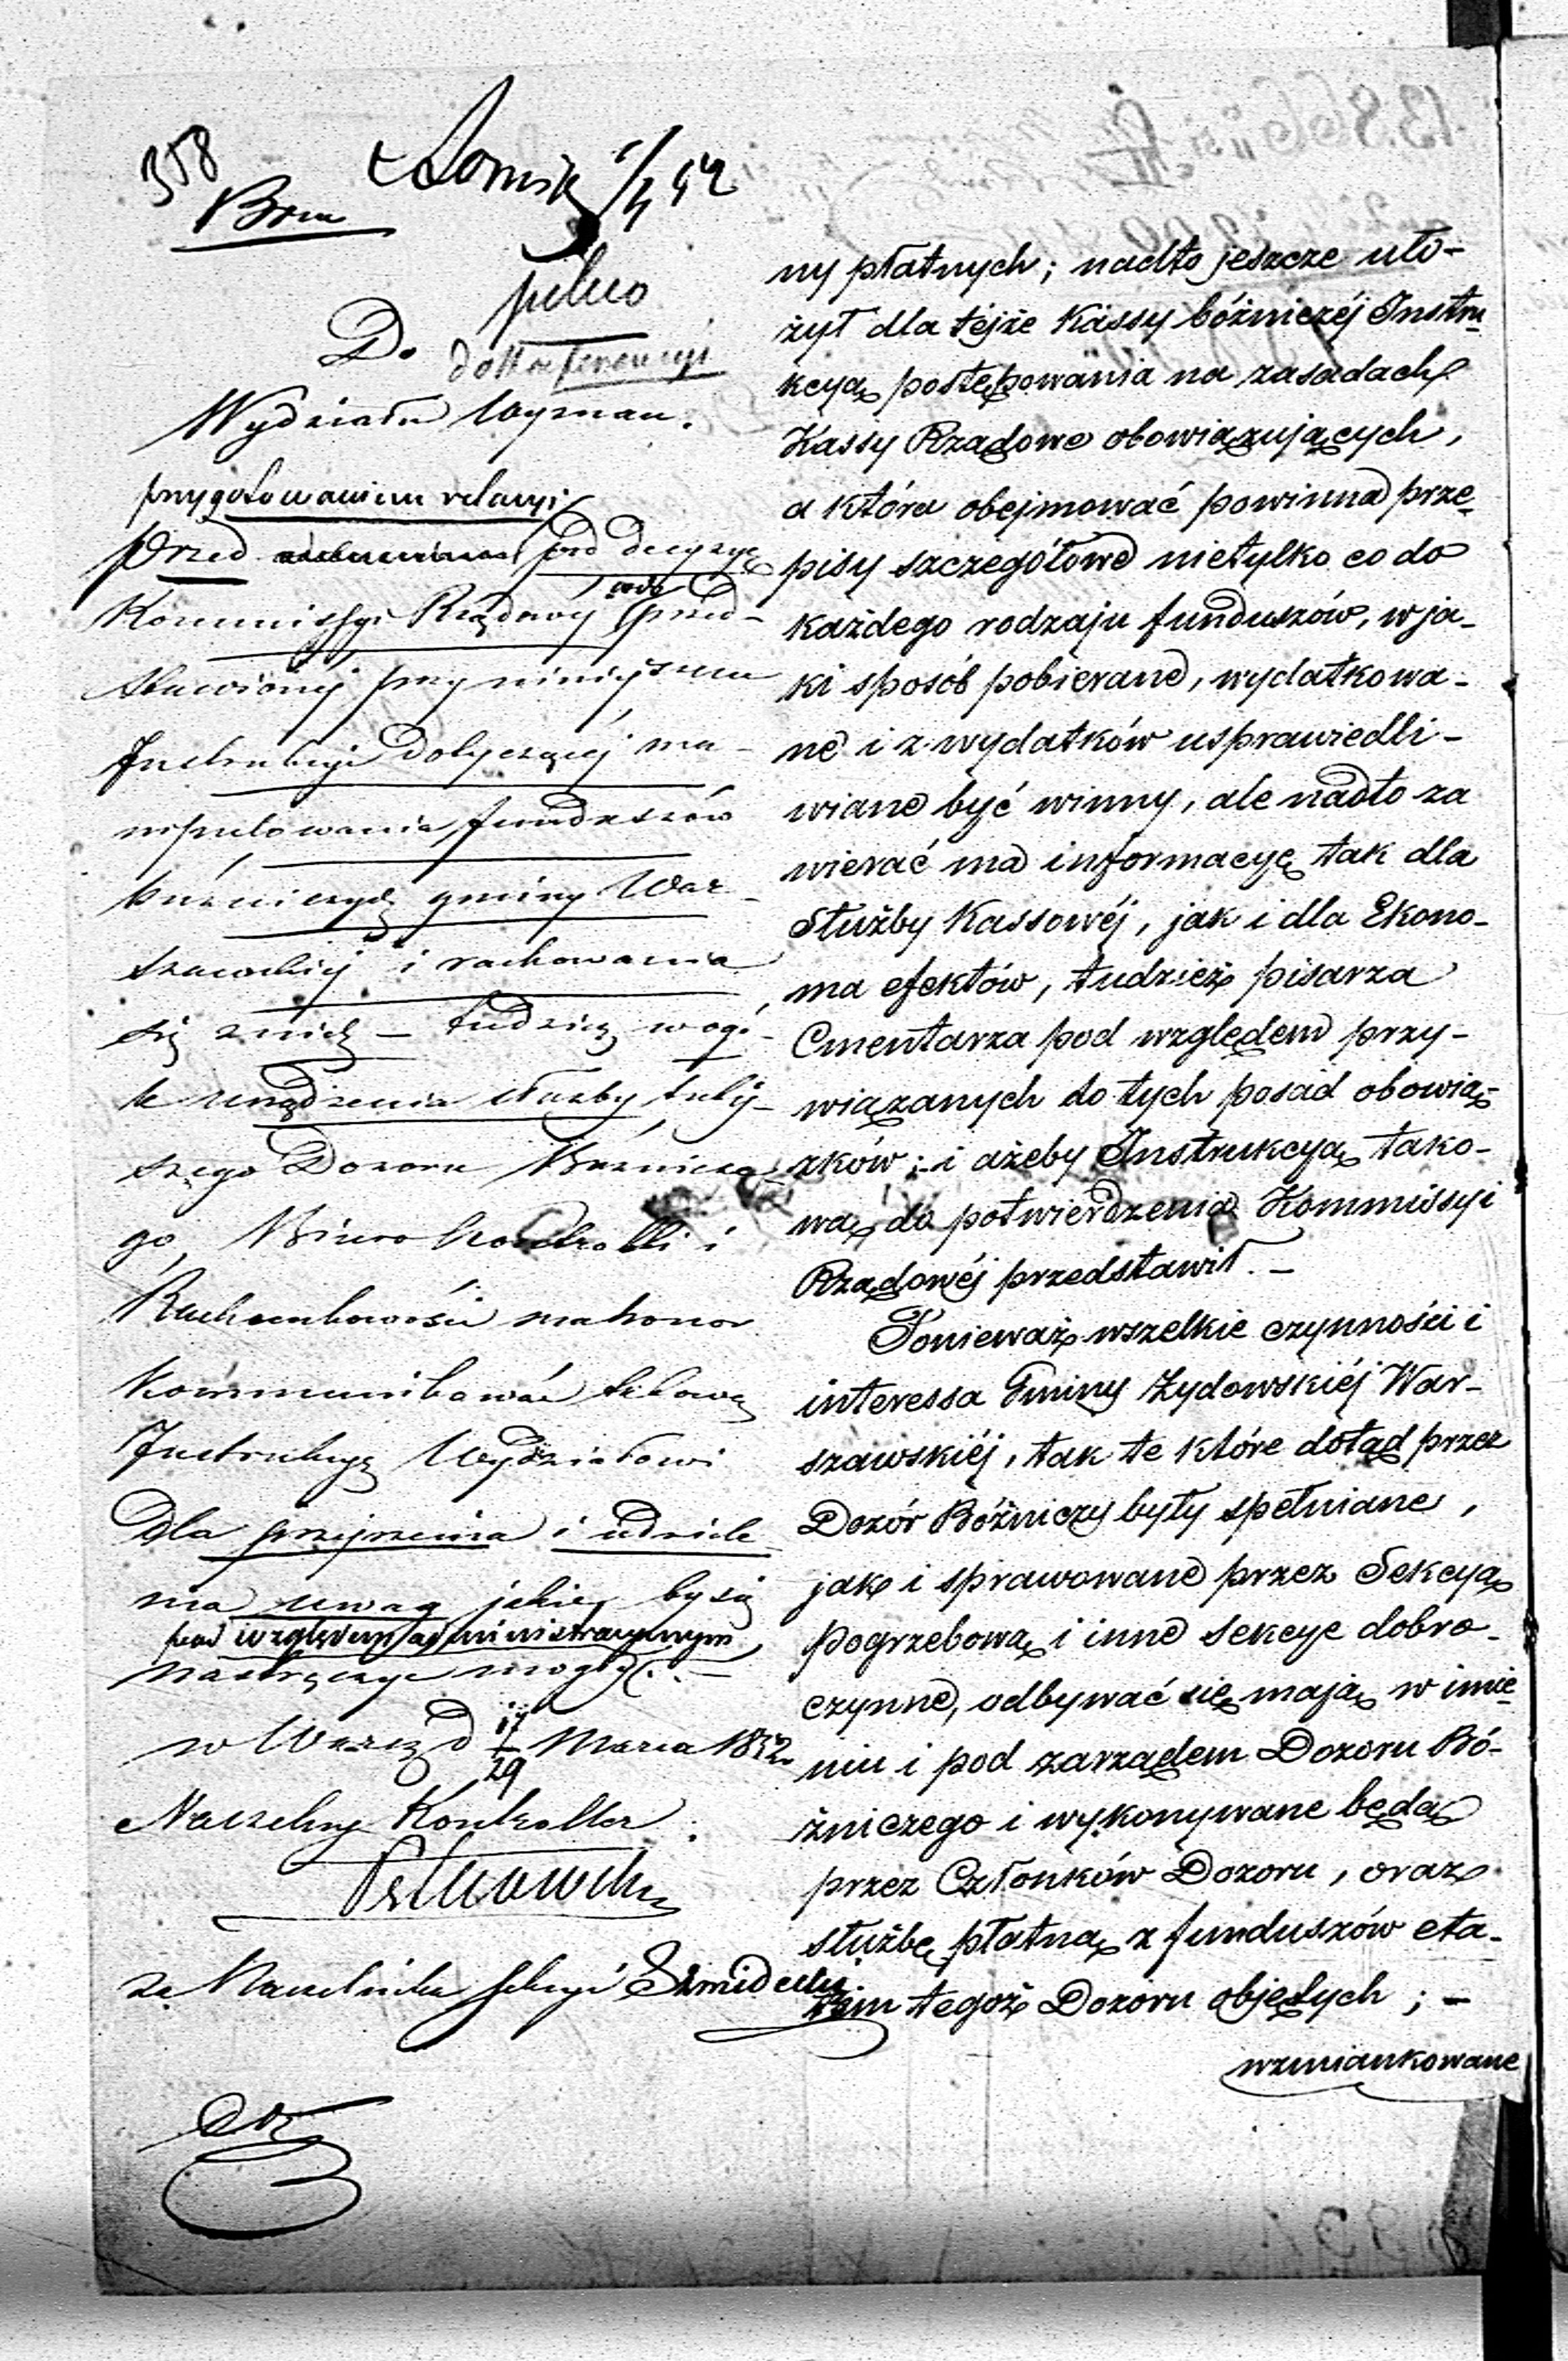 358
pilno
Do
do Konferencyi
Wydziału Wyznań.
przygotowaniem relacyi
Przed pod decyzyę
Kommissyi Rządowéj przed-
stawionéj przy niniejszem
Instrukcyi dotyczącéj ma-
nipulowania funduszów
bóżniczych gminy War-
szawskiéj i rachowania
się z nich – tudzież w ogó-
le urządzenia służby tutéj-
szego Dozoru Bóżnicze-
go, Biuro Kontrolli i
Rachunkowości ma honor
kommunikować takową
Instrukcyę Wydziałowi
dla przejrzenia i udziele-
nia uwag jakie by się
pod względem administracyjnym
nastręczyć mogły. –
w Warsz. d 17/29 Marca 1852
Naczelny Kontroller
za Naczelnika Sekcyi
ny płatnych; nadto jeszcze uło-
żył dla tejże Kassy bóżniczéj Instru-
kcyą postępowania na zasadach
Kassy Rządowe obowiązujących,
a która obejmować powinna prze-
pisy szczegółowe nietylko co do
każdego rodzaju funduszów, w ja-
ki sposób pobierane, wydatkowa-
ne i z wydatków usprawiedli-
wiane być winny, ale nadto za
wierać ma informacyę tak dla
Służby Kassowéj, jak i dla Ekono-
ma efektów, tudzież pisarza
Cmentarza pod względem przy-
wiązanych do tych posad obowią-
zków; i ażeby Instrukcyą tako-
wą do potwierdzenia Kommissyi
Rządowéj przedstawił. –
Ponieważ wszelkie czynności i
interessa Gminy Żydowskiéj War-
szawskiéj, tak te które dotąd przez
Dozór Bóżniczy były spełniane,
jak i sprawowane przez Sekcyą
pogrzebową i inne sekcye dobro-
czynne, odbywać się mają w imie-
niu i pod zarządem Dozoru Bó-
żniczego i wykonywane będą
przez Członków Dozoru, oraz
służbę płatną z funduszów eta-
tem tegoż Dozoru objętych; –
wzmiankowane